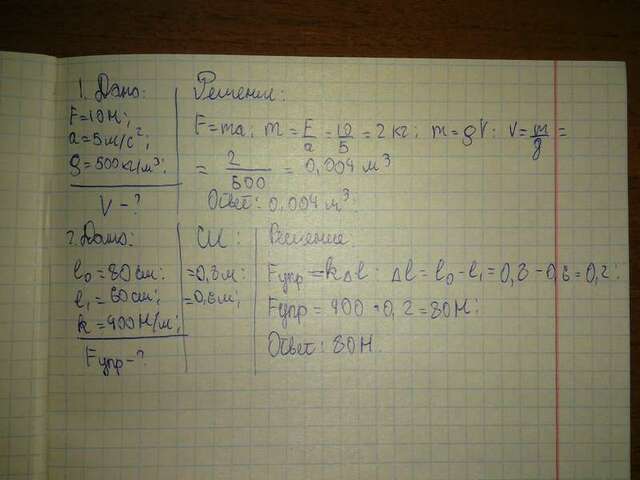 1. Дано:
F=10Н;
a=5м/с²;
ρ=500кг/м³;
V-?
Решение:
F=ma; m=F/a=10/5=2кг; m=ρV: V=m/ρ=
=2/500=0,004м³
Ответ: 0,004м³
2. Дано:
l₀=80см:
l₁=60см;
k=400Н/м;
Fупр-?
СИ:
=0,8м:
=0,6м;
Решение
Fупр=kΔl: Δl=l₀-l₁=0,8-0,6=0,2:
Fупр=400·0,2=80Н:
Ответ: 80Н.